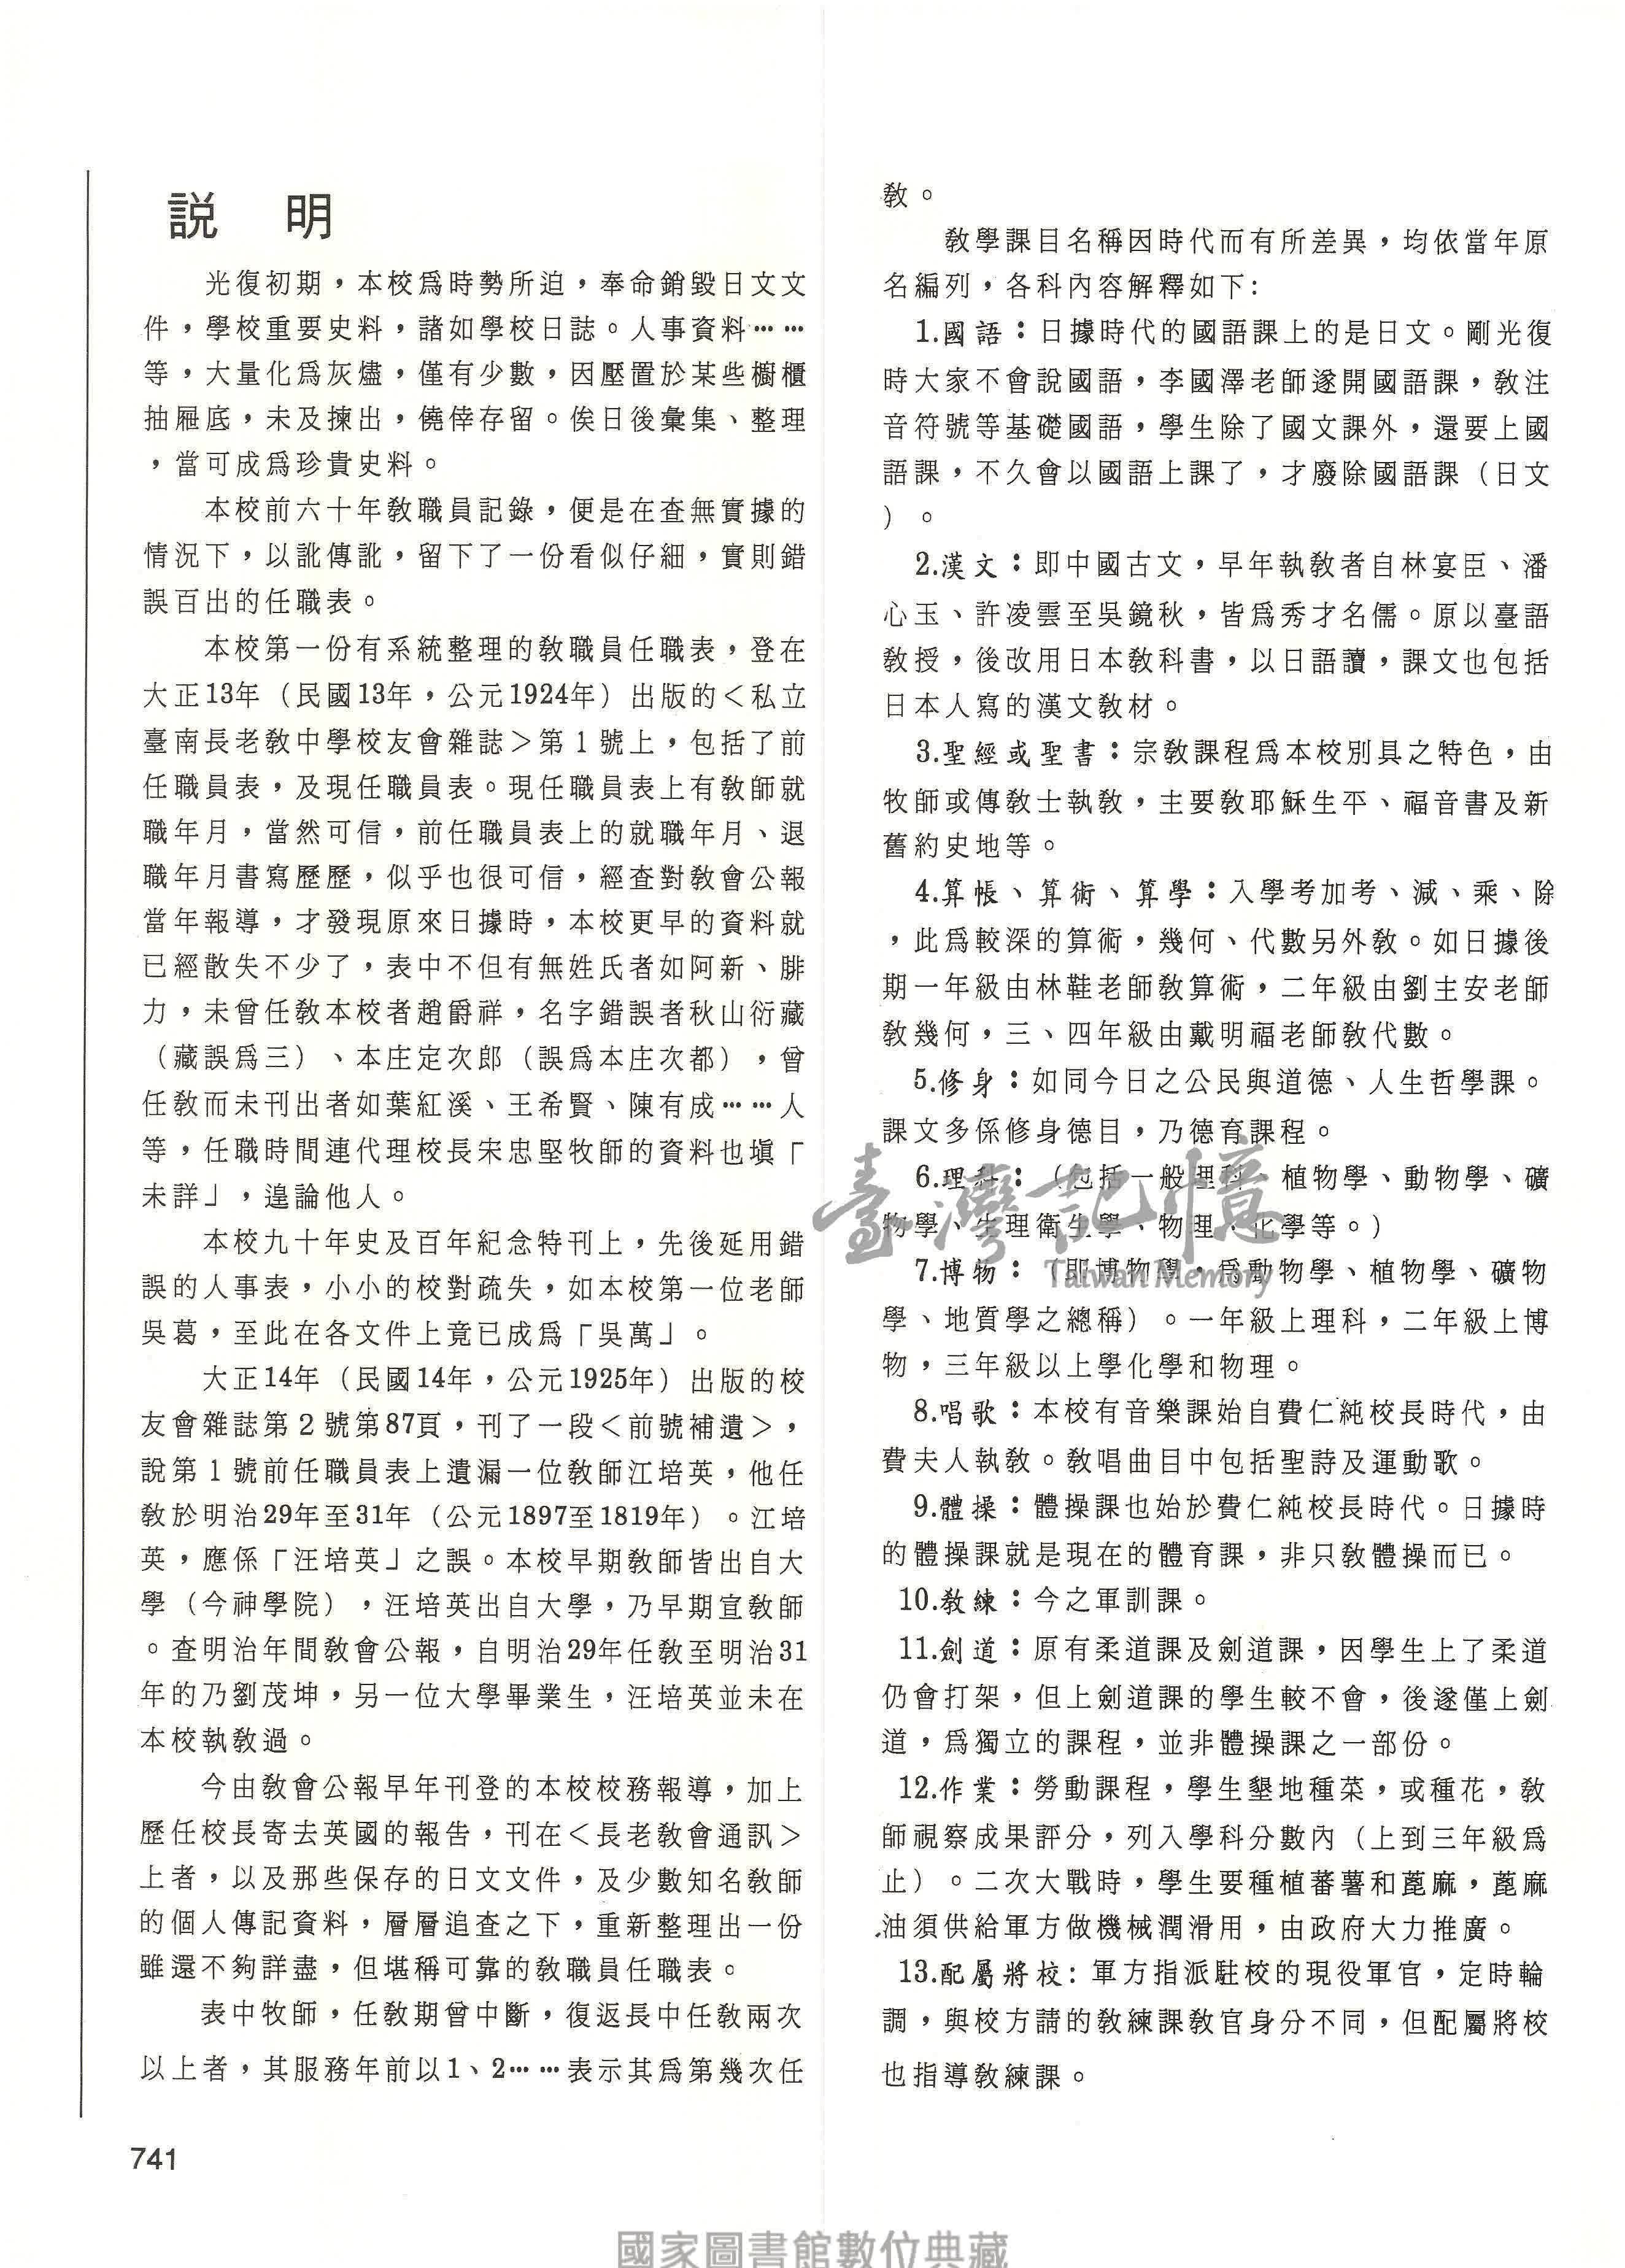 説　明
光復初期，本校爲時勢所迫，奉命銷毀日文文
件，學校重要史料，諸如學校日誌。人事資料……
等，大量化爲灰燼，僅有少數，因壓置於某些櫥櫃
抽屜底，未及揀出，僥倖存留。俟日後彙集、整理
，當可成爲珍貴史料。
本校前六十年教職員記錄，便是在查無實據的
情況下，以訛傳訛，留下了一份看似仔細，實則錯
誤百出的任職表。
本校第一份有系統整理的教職員任職表，登在
大正13年（民國13年，公元1924年）出版的＜私立
臺南長老教中學校友會雜誌＞第1號上，包括了前
任職員表，及現任職員表。現任職員表上有教師就
職年月，當然可信，前任職員表上的就職年月、退
職年月書寫歷歷，似乎也很可信，經查對教會公報
當年報導，才發現原來日據時，本校更早的資料就
已經散失不少了，表中不但有無姓氏者如阿新、腓
力，未曾任教本校者趙爵祥，名字錯誤者秋山衍藏
（藏誤爲三）、本庄定次郎（誤爲本庄次都），曾
任教而未刊出者如葉紅溪、王希賢、陳有成……人
等，任職時間連代理校長宋忠堅牧師的資料也塡「
未詳」，遑論他人。
本校九十年史及百年紀念特刊上，先後延用錯
誤的人事表，小小的校對疏失，如本校第一位老師
吳葛，至此在各文件上竟已成爲「吳萬」。
大正14年（民國14年，公元1925年）出版的校
友會雜誌第2號第87頁，刊了一段＜前號補遺＞，
說第1號前任職員表上遺漏一位教師江培英，他任
教於明治29年至31年（公元1897至1819年）。江培
英，應係「汪培英」之誤。本校早期教師皆出自大
學（今神學院），汪培英出自大學，乃早期宣教師
。查明治年間教會公報，自明治29年任教至明治31
年的乃劉茂坤，另一位大學畢業生，汪培英並未在
本校執教過。
今由教會公報早年刊登的本校校務報導，加上
歷任校長寄去英國的報告，刊在＜長老教會通訊＞
上者，以及那些保存的日文文件，及少數知名教師
的個人傳記資料，層層追查之下，重新整理出一份
雖還不夠詳盡，但堪稱可靠的教職員任職表。
表中牧師，任教期曾中斷，復返長中任教兩次
以上者，其服務年前以1、2……表示其爲第幾次任
教。
教學課目名稱因時代而有所差異，均依當年原
名編列，各科內容解釋如下：
1.國語：日據時代的國語課上的是日文。剛光復
時大家不會說國語，李國澤老師遂開國語課，教注
音符號等基礎國語，學生除了國文課外，還要上國
語課，不久會以國語上課了，才廢除國語課（日文
）。
2.漢文：即中國古文，早年執教者自林宴臣、潘
心玉、許凌雲至吳鏡秋，皆爲秀才名儒。原以臺語
教授，後改用日本教科書，以日語讀，課文也包括
日本人寫的漢文教材。
3.聖經或聖書：宗教課程爲本校別具之特色，由
牧師或傳教士執教，主要教耶穌生平、福音書及新
舊約史地等。
4.算帳、算術、算學：入學考加考、減、乘、除
，此爲較深的算術，幾何、代數另外教。如日據後
期一年級由林鞋老師教算術，二年級由劉主安老師
教幾何，三、四年級由戴明福老師教代數。
5.修身：如同今日之公民與道德、人生哲學課。
課文多係修身德目，乃德育課程。
6.理科：（包括一般理科、植物學、動物學、礦
物學、生理衛生學、物理、化學等。）
7.博物：（即博物學，爲動物學、植物學、礦物
學、地質學之總稱）。一年級上理科，二年級上博
物，三年級以上學化學和物理。
8.唱歌：本校有音樂課始自費仁純校長時代，由
費夫人執教。教唱曲目中包括聖詩及運動歌。
9.體操：體操課也始於費仁純校長時代。日據時
的體操課就是現在的體育課，非只教體操而已。
10.教練：今之軍訓課。
11.劍道：原有柔道課及劍道課，因學生上了柔道
仍會打架，但上劍道課的學生較不會，後遂僅上劍
道，爲獨立的課程，並非體操課之一部份。
12.作業：勞動課程，學生墾地種菜，或種花，教
師視察成果評分，列入學科分數內（上到三年級爲
止）。二次大戰時，學生要種植蕃薯和蓖麻，蓖麻
油須供給軍方做機械潤滑用，由政府大力推廣。
13.配屬將校：軍方指派駐校的現役軍官，定時輪
調，與校方請的教練課教官身分不同，但配屬將校
也指導教練課。
臺灣記憶
Taiwan Memory
741
國家圖書館數位典藏